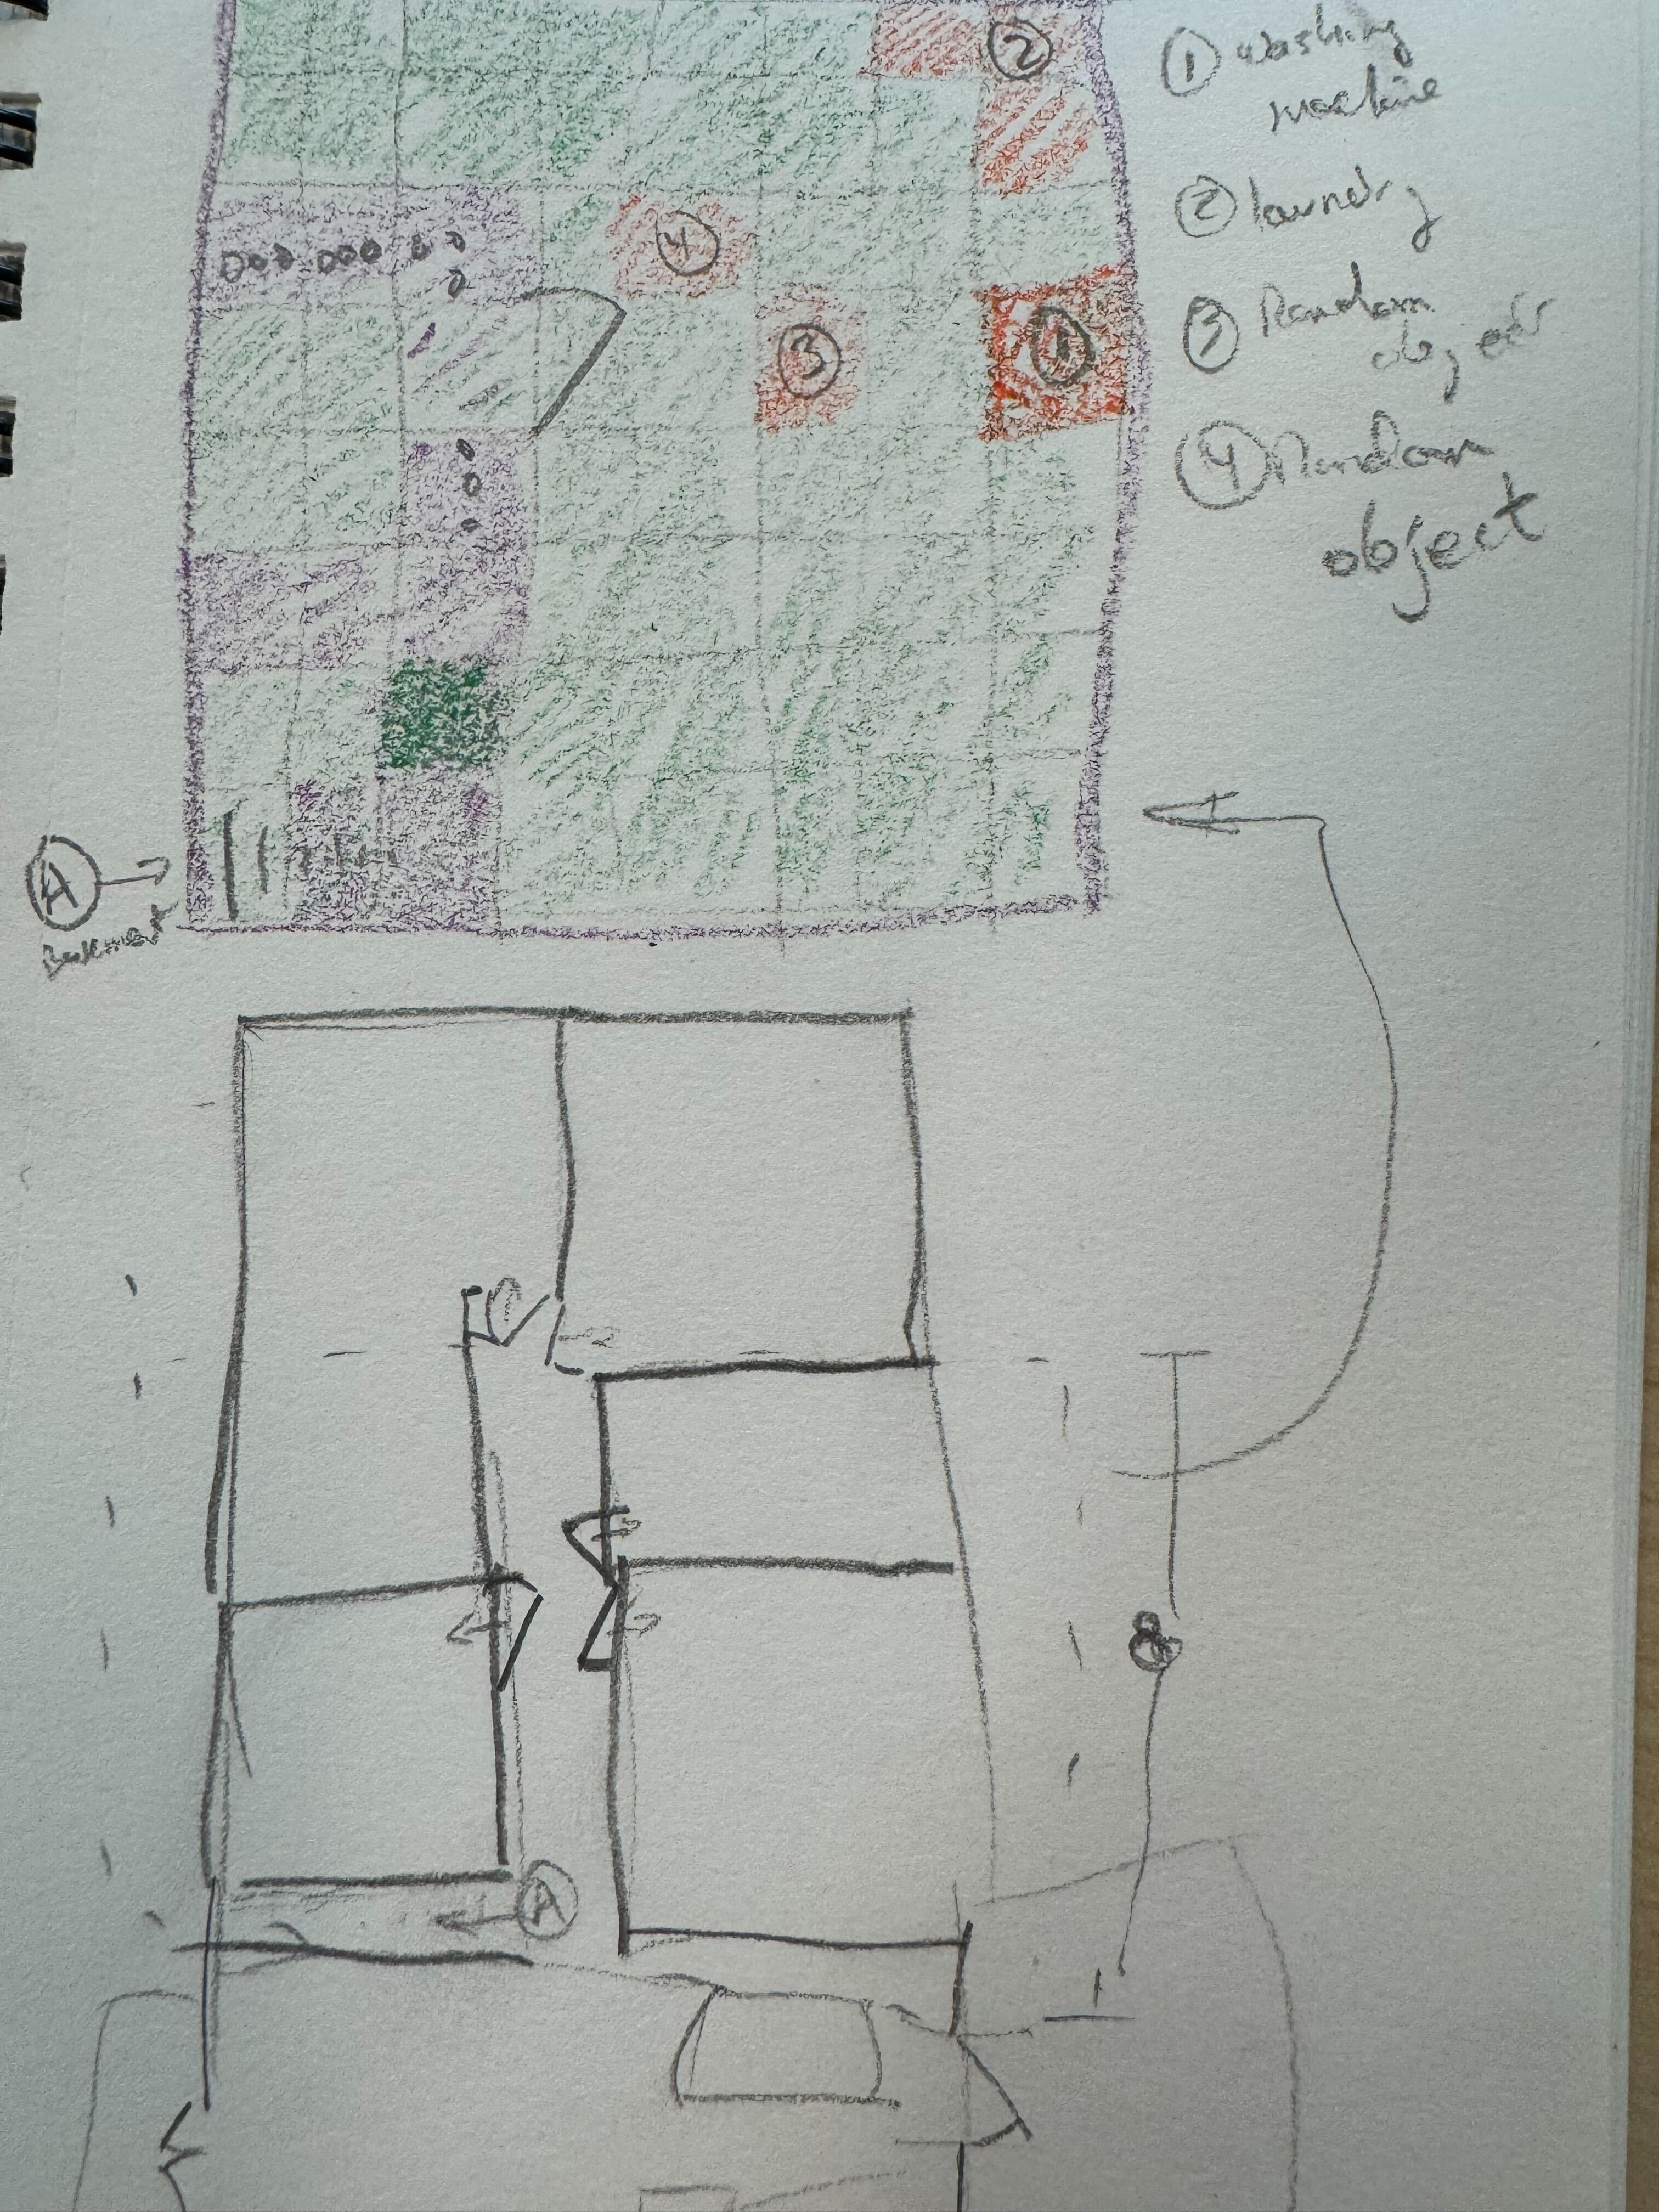 ① washing
machine
② laundry
③ Random
object
④ Random
object
②
④
③
①
A
Basement
8
A